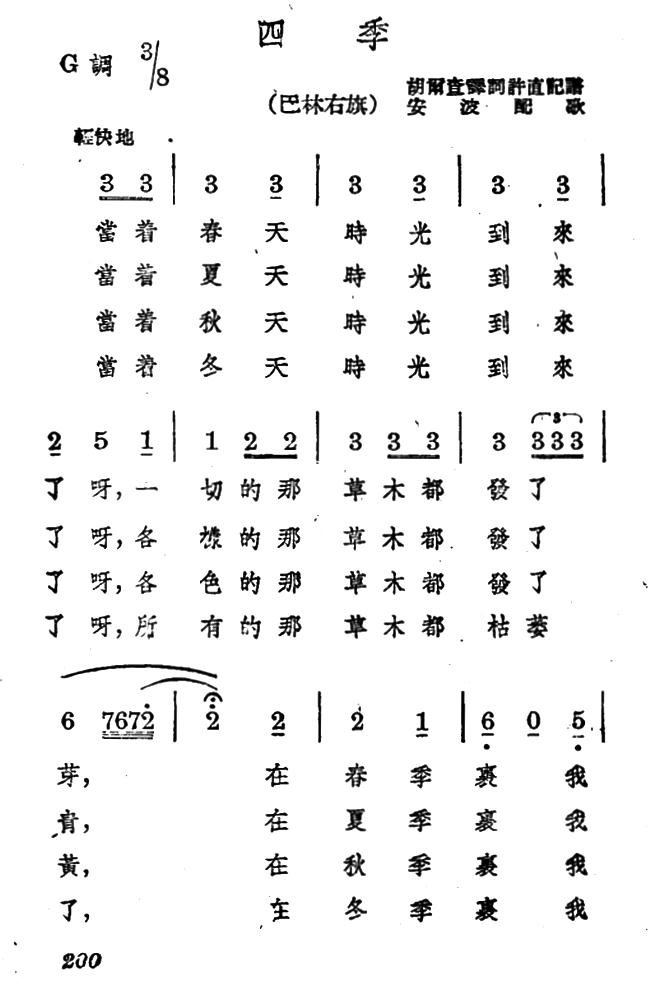 四 季
G 調 3/8
胡爾查譯詞 許直記譜
(巴林右旗) 安波配歌
輕快地
3 3 | 3 3 | 3 3 | 3 3 |
當着 春天 時光 到來
當着 夏天 時光 到來
當着 秋天 時光 到來
當着 冬天 時光 到來
2 5 1 | 1 2 2 | 3 3 3 | 3 3 3 3 |
了呀,一 切的那 草木都 發了
了呀,各 樣的那 草木都 發了
了呀,各 色的那 草木都 發了
了呀,所 有的那 草木都 枯萎
6 7672 | 2 2 | 2 1 | 6 0 5 |
芽, 在 春季 裏 我
青, 在 夏季 裏 我
黃, 在 秋季 裏 我
了, 在 冬季 裏 我
200